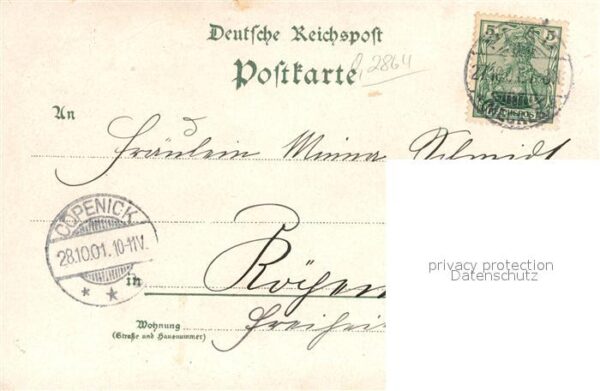 Deutsche Reichspost
Postkarte
2864
5 5
An
Fräulein Minna Schmidt
CÖPENICK
28.10.01. 10-11V.
* *
privacy protection
Datenschutz
in
Wohnung
(Straße und Hausnummer)
Freiheit